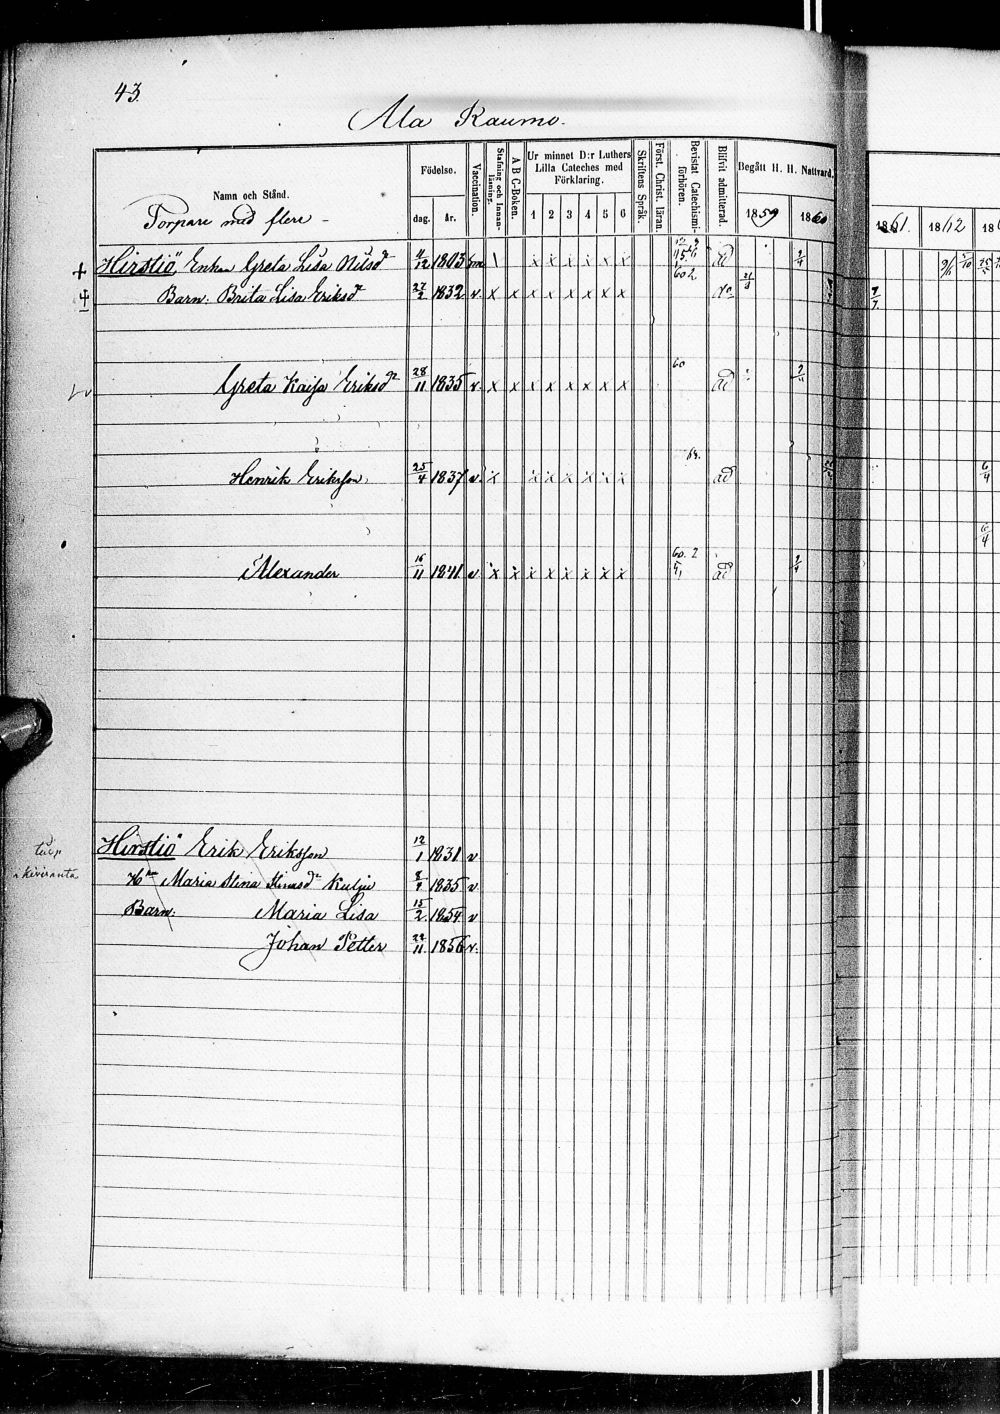 43.
Ala Raumo.
Namn och Stånd.
Torpare med flere -
Födelse.
dag. år.
Vaccination.
Stafning och Innanläsning.
A B C-Boken.
Ur minnet D:r Luthers Lilla Cateches med Förklaring.
1 2 3 4 5 6
Skriftens Språk.
Först. Christ. läran.
Bevistat Catechismiförhören.
Blifvit admitterad.
Begått H. H. Nattvard.
1859 1860
1861. 1862 186
+ Hirstiö, Enkan Greta Lisa Nilsd 4/12 1803
Barn: Brita Lisa Eriksd 27/2 1832 v. x x x x x x x x
Greta Kaisa Eriksdr 28/11 1835 v. x x x x x x x x 60 ad
Henrik Eriksson 25/4 1837 v. x x x x x x x ad
6/4
Alexander 16/11 1841 v x x x x x x x x 60. 2 ad
Hirstiö Erik Eriksson 12/1 1831 v
Hu Maria Stina 1835 v
Barn: Maria Lisa 15/2. 1854 v
Johan Petter 22/11. 1856 v.